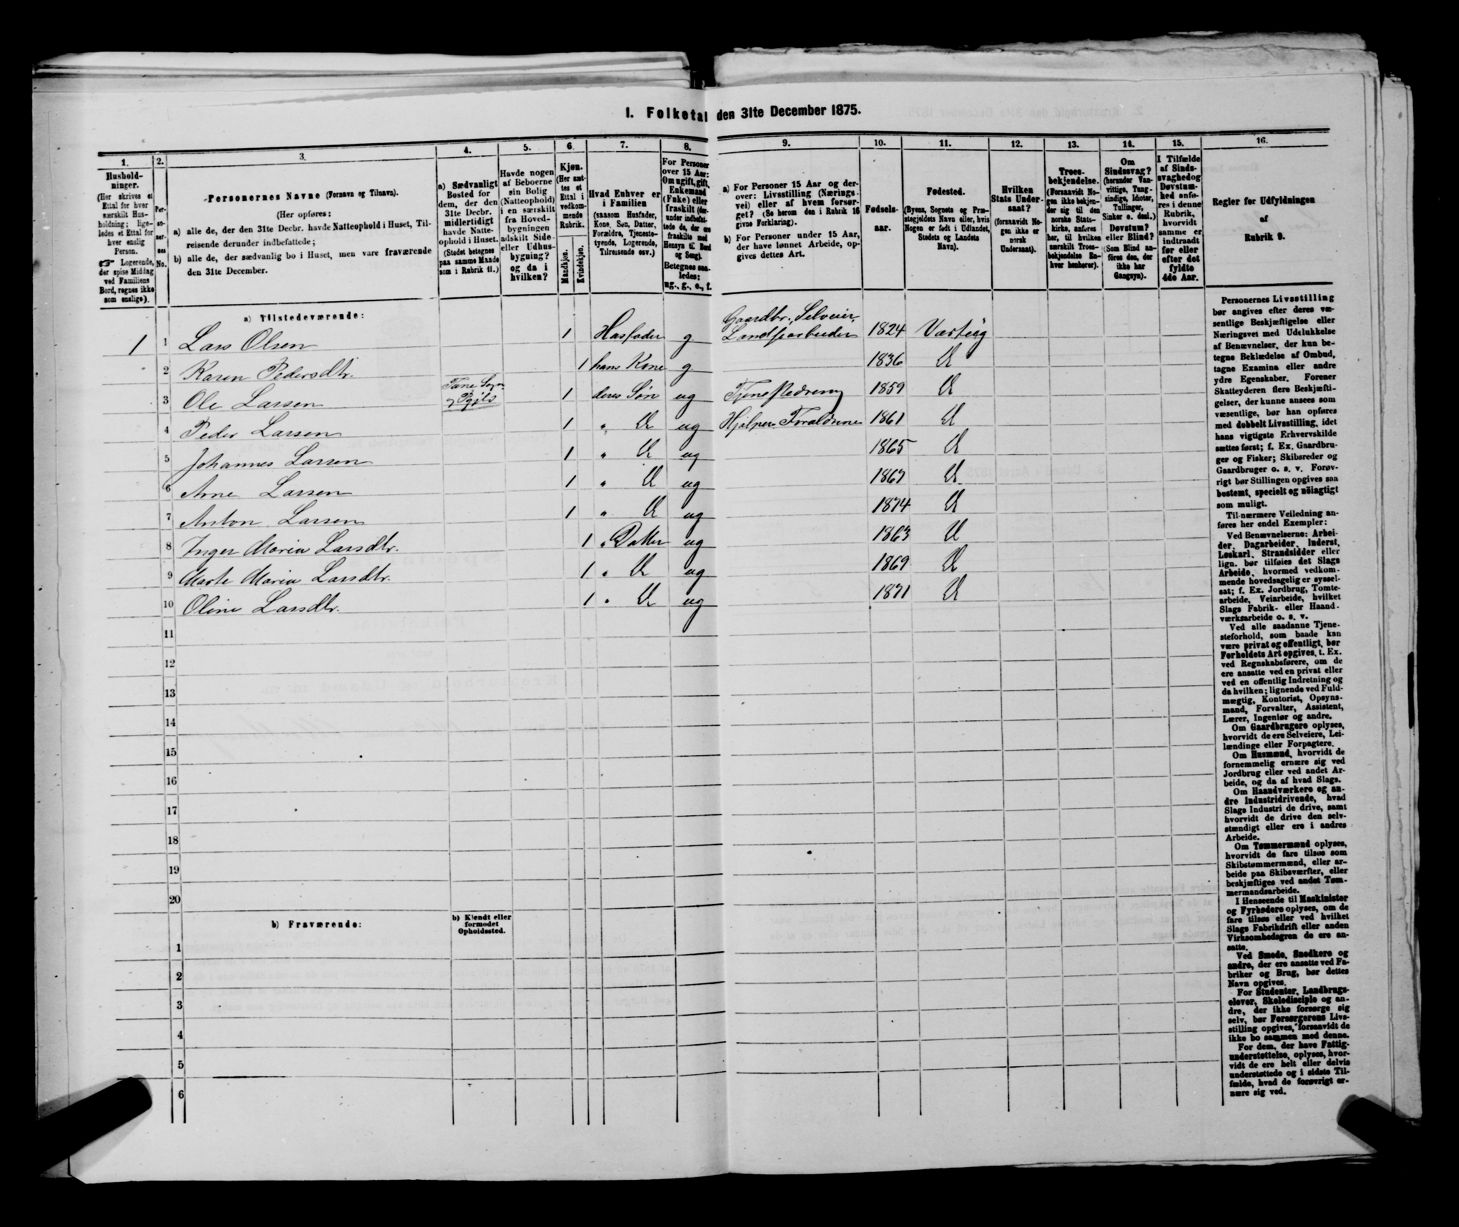 I. Folketal den 31te December 1875.
1. 2. 3. 4. 5. 6. 7. 8. 9. 10. 11. 12. 13. 14. 15. 16.
Hushold-
ninger.
(Her skrives et
Ettal for hver
særskilt Hus-
holdning; lige-
ledes et Ettal for
hver enslig
Person.
☞ Logerende,
der spise Middag
ved Familiens
Bord, regnes ikke
som enslige).
Per-
so-
ner-
nes
No.
Personernes Navne (Fornavn og Tilnavn).
(Her opføres:
a) alle de, der den 31te Decbr. havde Natteophold i Huset, Til-
reisende derunder indbefattede;
b) alle de, der sædvanlig bo i Huset, men vare fraværende
den 31te December.
a) Sædvanligt
Bosted for
dem, der den
31te Decbr.
midlertidigt
havde Natte-
ophold i Huset.
(Stedet betegnes
paa samme Maade
som i Rubrik 11.)
Havde nogen
af Beboerne
sin Bolig
(Natteophold)
i en særskilt
fra Hoved-
bygningen
adskilt Side-
eller Udhus-
bygning?
og da i
hvilken?
Kjøn.
(Her sæt-
tes et
Ettal i
vedkom-
mende
Rubrik.
Mandkjøn.
Kvindekjøn.
Hvad Enhver er
i Familien
(saasom Husfader,
Kone, Søn, Datter,
Forældre, Tjeneste-
tyende, Logerende,
Tilreisende osv.)
For Personer
over 15 Aar:
Om ugift, gift,
Enkemand
(Enke) eller
fraskilt
Betegnes saa-
ledes:
ug., g., e., f.
a) For Personer 15 Aar og der-
over: Livsstilling (Nærings-
vei) eller af hvem forsør-
get? (Se herom den i Rubrik 16
givne Forklaring).
b) For Personer under 15 Aar,
der have lønnet Arbeide, op-
gives dettes Art.
Fødsels-
aar.
Fødested.
(Byens, Sognets og Præ-
stegjeldets Navn eller, hvis
Nogen er født i Udlandet,
Stedets og Landets
Navn).
Hvilken
Stats Under-
saat?
(forsaavidt No-
gen ikke er
norsk
Undersaat).
Troes-
bekjendelse.
(Forsaavidt No-
gen ikke bekjen-
der sig til den
norske Stats-
kirke, anføres
her, til hvilken
særskilt Troes-
bekjendelse En-
hver henhører).
Om
Sindssvag?
(herunder Van-
vittige, Tung-
sindige, Idioter,
Tullinger,
Sinker o. desl.)
Døvstum?
eller Blind?
(Som Blind an-
føres den, der
ikke har
Gangsyn).
I Tilfælde
af Sinds-
svaghed og
Døvstum-
hed anfø-
res i denne
Rubrik,
hvorvidt
samme er
indtraadt
før eller
efter det
fyldte
4de Aar.
Regler for Udfyldningen
af
Rubrik 9.
a) Tilstedeværende:
1 1 Lars Olsen 1 Husfader g Gaardbr., Selveier, Landhparbeider 1824 Varteig
2 Karen Pedersdtr. 1 hans Kone g 1836 Do
3 Ole Larsen Tune Sogn og Pgjls 1 deres Søn ug Tjenestedreng 1859 Do
4 Peder Larsen 1 „ Do ug Hjælper Forældrene 1861 Do
5 Johannes Larsen 1 „ Do ug 1865 Do
6 Arne Larsen 1 „ Do ug 1867 Do
7 Anton Larsen 1 „ Do ug 1874 Do
8 Inger Maria Larsdtr. 1 „ Datter ug 1863 Do
9 Marte Maria Larsdtr. 1 „ Do ug 1869 Do
10 Oline Larsdtr. 1 „ Do ug 1871 Do
11
12
13
14
15
16
17
18
19
20
b) Fraværende:
b) Kjendt eller
formodet
Opholdssted.
1
2
3
4
5
6
Personernes Livsstilling
bør angives efter deres væ-
sentlige Beskjæftigelse eller
Næringsvei med Udelukkelse
af Benævnelser, der kun be-
tegne Beklædelse af Ombud,
tagne Examina eller andre
ydre Egenskaber. Forener
Skatteyderen flere Beskjæfti-
gelser, der kunne ansees som
væsentlige, bør han opføres
med dobbelt Livsstilling, idet
hans vigtigste Erhvervskilde
sættes først; f. Ex. Gaardbru-
ger og Fisker; Skibsreder og
Gaardbruger o. s. v. Forøv-
rigt bør Stillingen opgives saa
bestemt, specielt og nöiagtigt
som muligt.
Til nærmere Veiledning an-
føres her endel Exempler:
Ved Benævnelserne: Arbei-
der, Dagarbeider, Inderst,
Løskarl, Strandsidder eller
lign. bør tilføies det Slags
Arbeide, hvormed vedkom-
mende hovedsagelig er syssel-
sat; f. Ex. Jordbrug, Tomte-
arbeide, Veiarbeide, hvilket
Slags Fabrik- eller Haand-
værksarbeide o. s. v.
Ved alle saadanne Tjene-
steforhold, som baade kan
være privat og offentligt, bør
Forholdets Art opgives, t. Ex.
ved Regnskabsførere, om de
ere ansatte ved en privat eller
ved en offentlig Indretning og
da hvilken; lignende ved Fuld-
mægtig, Kontorist, Opsyns-
mand, Forvalter, Assistent,
Lærer, Ingeniør og andre.
Om Gaardbrugere oplyses,
hvorvidt de ere Selveiere, Lei-
lændinge eller Forpagtere.
Om Husmænd, hvorvidt de
fornemmelig ernære sig ved
Jordbrug eller ved andet Ar-
beide, og da af hvad Slags.
Om Haandværkere og an-
dre Industridrivende, hvad
Slags Industri de drive, samt
hvorvidt de drive den selv-
stændigt eller ere i andres
Arbeide.
Om Tømmermænd oplyses,
hvorvidt de fare tilsøs som
Skibstømmermænd, eller ar-
beide paa Skibsværfter, eller
beskjæftiges ved andet Tøm-
mermandsarbeide.
I Henseende til Maskinister
og Fyrbødere oplyses, om de
fare tilsøs eller ved hvilket
Slags Fabrikdrift eller anden
Virksomhedsgren de ere an-
satte.
Ved Smede, Snedkere og
andre, der ere ansatte ved Fa-
briker og Brug, bør dettes
Navn opgives.
For Studenter, Landbrugs-
elever, Skoledisciple og an-
dre, der ikke forsørge sig
selv, bør Forsørgerens Livs-
stilling opgives, forsaavidt de
ikke bo sammen med denne.
For dem, der have Fattig-
understøttelse, oplyses, hvor-
vidt de ere helt eller delvis
understøttede og i sidste Til-
fælde, hvad de forøvrigt er-
nære sig ved.